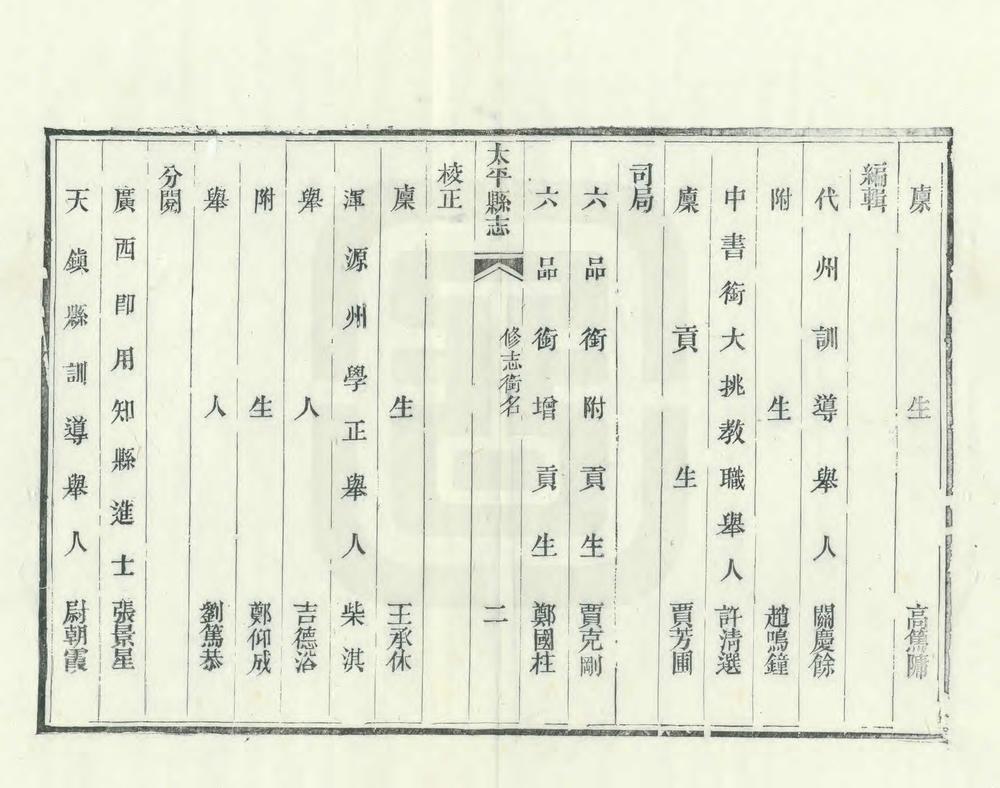 廩生　高篤墉
編輯
代州訓導舉人　關慶餘
附生　趙鳴鐘
中書銜大挑教職舉人　許清選
廩貢生　賈芳圃
司局
六品銜附貢生　賈克剛
六品銜增貢生　鄭國柱
太平縣志　修志銜名　二
校正
廩生　王承休
渾源州學正舉人　柴淇
舉人　吉德沿
附生　鄭仰成
舉人　劉篤恭
分閱
廣西即用知縣進士　張景星
天鎮縣訓導舉人　尉朝霞